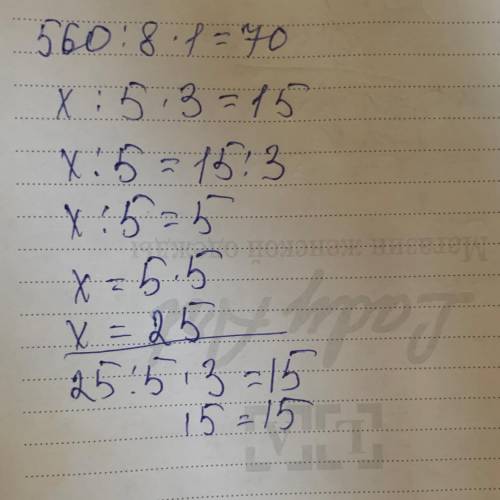 560 : 8 · 1 = 70
x : 5 · 3 = 15
x : 5 = 15 : 3
x : 5 = 5
Магазин женской одежды
x = 5 · 5
Lady
x = 25
25 : 5 · 3 = 15
15 = 15